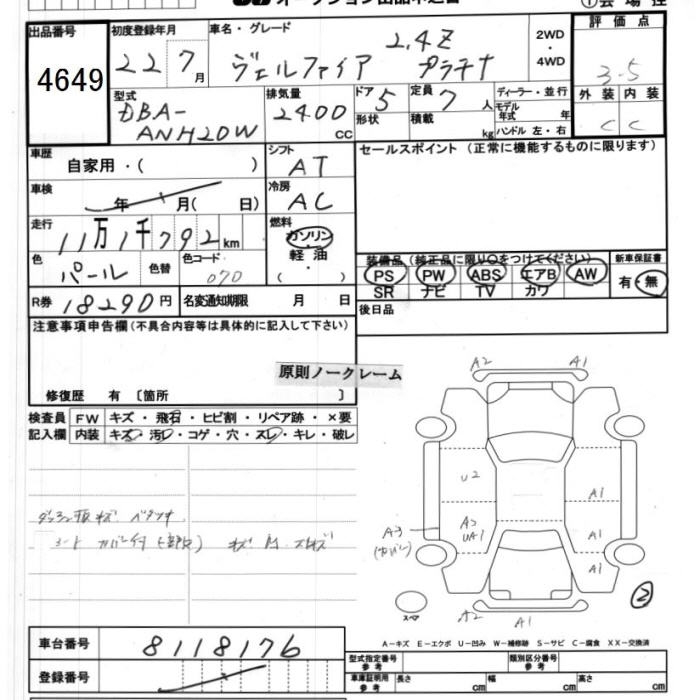 出品番号 4649
初度登録年月 22 7月
車名・グレード 2.4Z
ヴェルファイア プラチナ
2WD
・
4WD
評価点
3.5
外装 内装
C C
型式 DBA-
ANH20W
排気量 2400 cc
ドア 5
形状
定員 7 人
積載 kg
ディーラー・並行
モデル年式 年
ハンドル 左・右
車歴
自家用・( )
車検
年 月( 日)
シフト AT
冷房 AC
走行 11万1千792km
燃料
ガソリン
軽油
・
( )
色 パール 色替
色コード 070
R券 18290円
名変通知期限 月 日
セールスポイント (正常に機能するものに限ります)
装備品 (純正品に限り○をつけてください)
PS PW ABS エアB AW
SR ナビ TV カワ
新車保証書
有・無
後日品
注意事項申告欄(不具合内容等は具体的に記入して下さい)
原則ノークレーム
修復歴 有 〔箇所 〕
検査員 FW キズ・飛石・ヒビ割・リペア跡・×要
記入欄 内装 キズ・汚レ・コゲ・穴・スレ・キレ・破レ
A2 A1
U2
A1
A3
UA1
A1
A1
A2 A1
スペア
②
A-キズ E-エクボ U-凹み W-補修跡 S-サビ C-腐食 XX-交換済
車台番号 8118176
登録番号
型式指定番号 参考
類別区分番号 参考
車庫証明用 参考 長さ cm 幅 cm 高さ cm